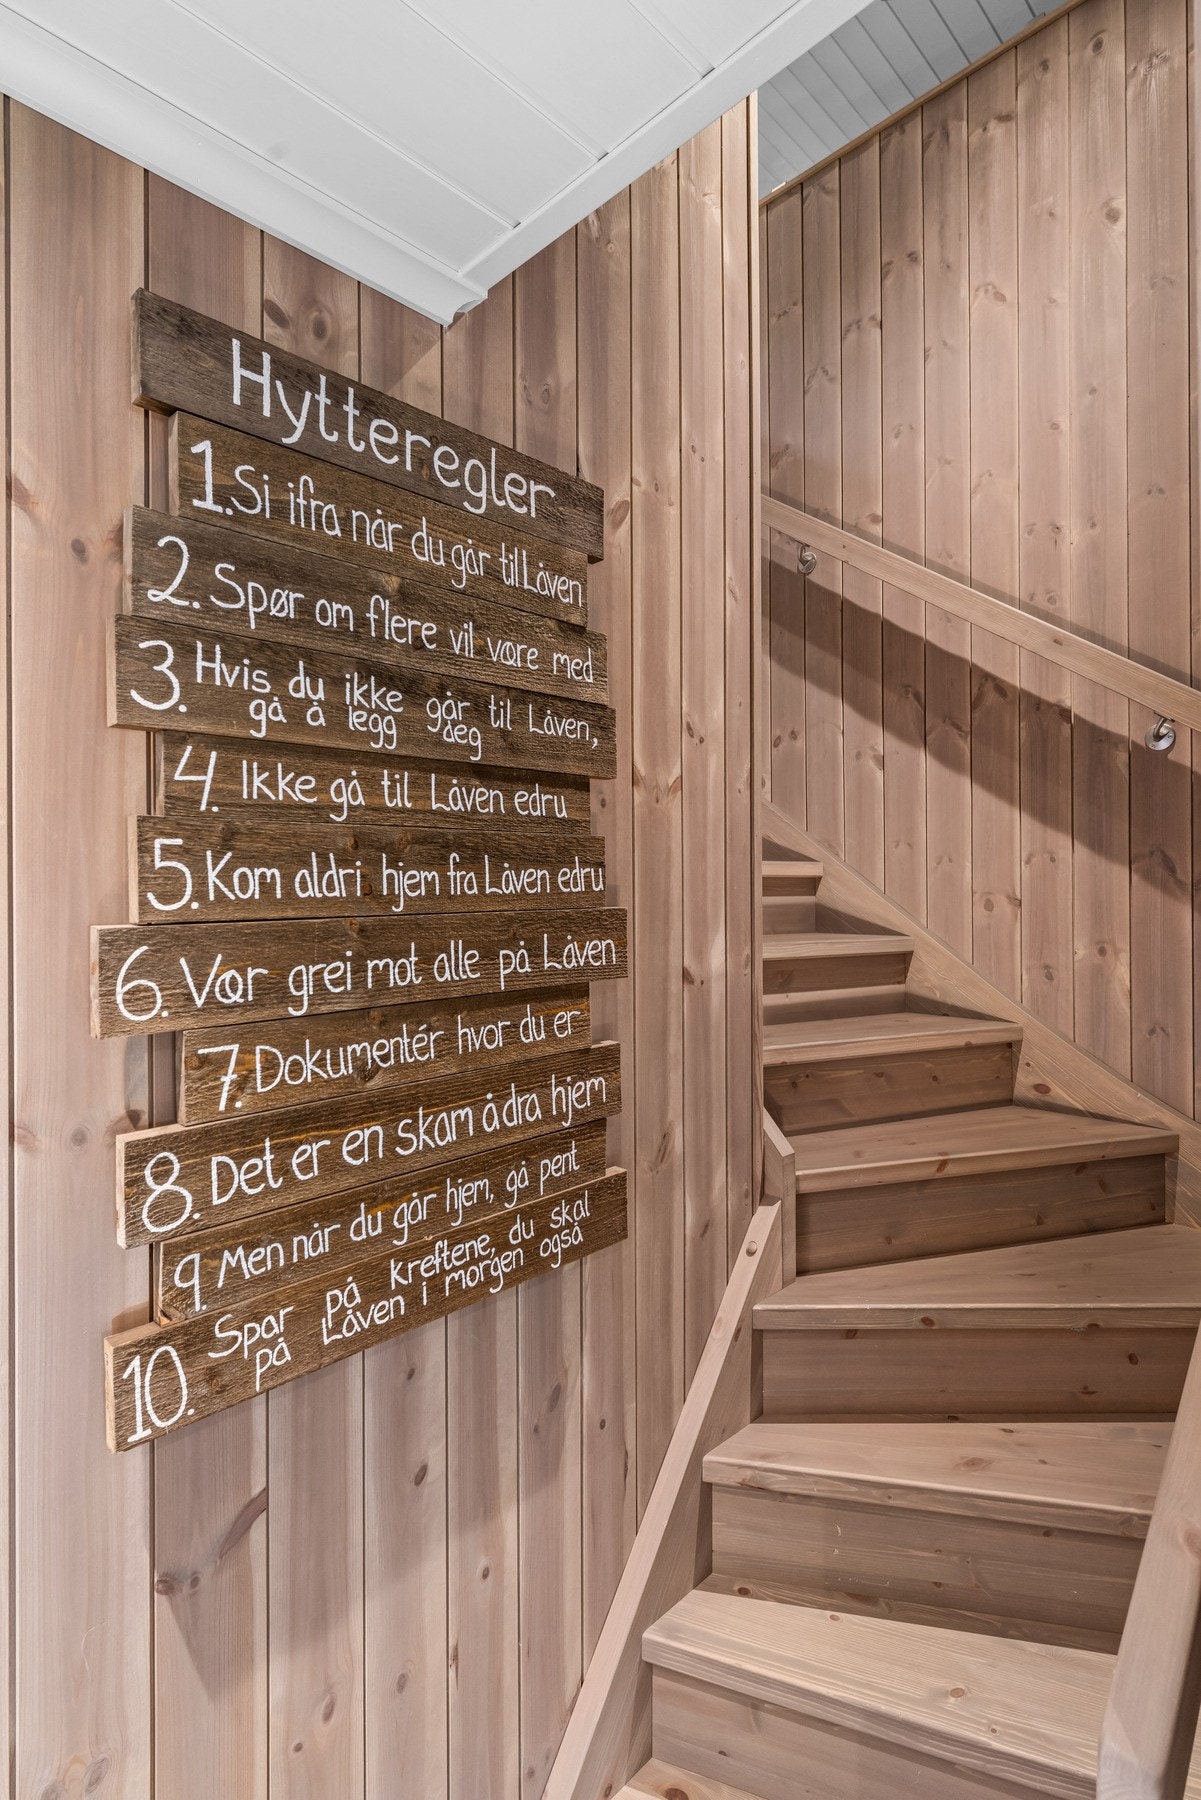 Hytteregler
1. Si ifra når du går til Låven
2. Spør om flere vil være med
3. Hvis du ikke går til Låven,
gå å legg deg
4. Ikke gå til Låven edru
5. Kom aldri hjem fra Låven edru
6. Vær grei mot alle på Låven
7. Dokumentér hvor du er
8. Det er en skam å dra hjem
9. Men når du går hjem, gå pent
10. Spar på kreftene, du skal
på Låven i morgen også